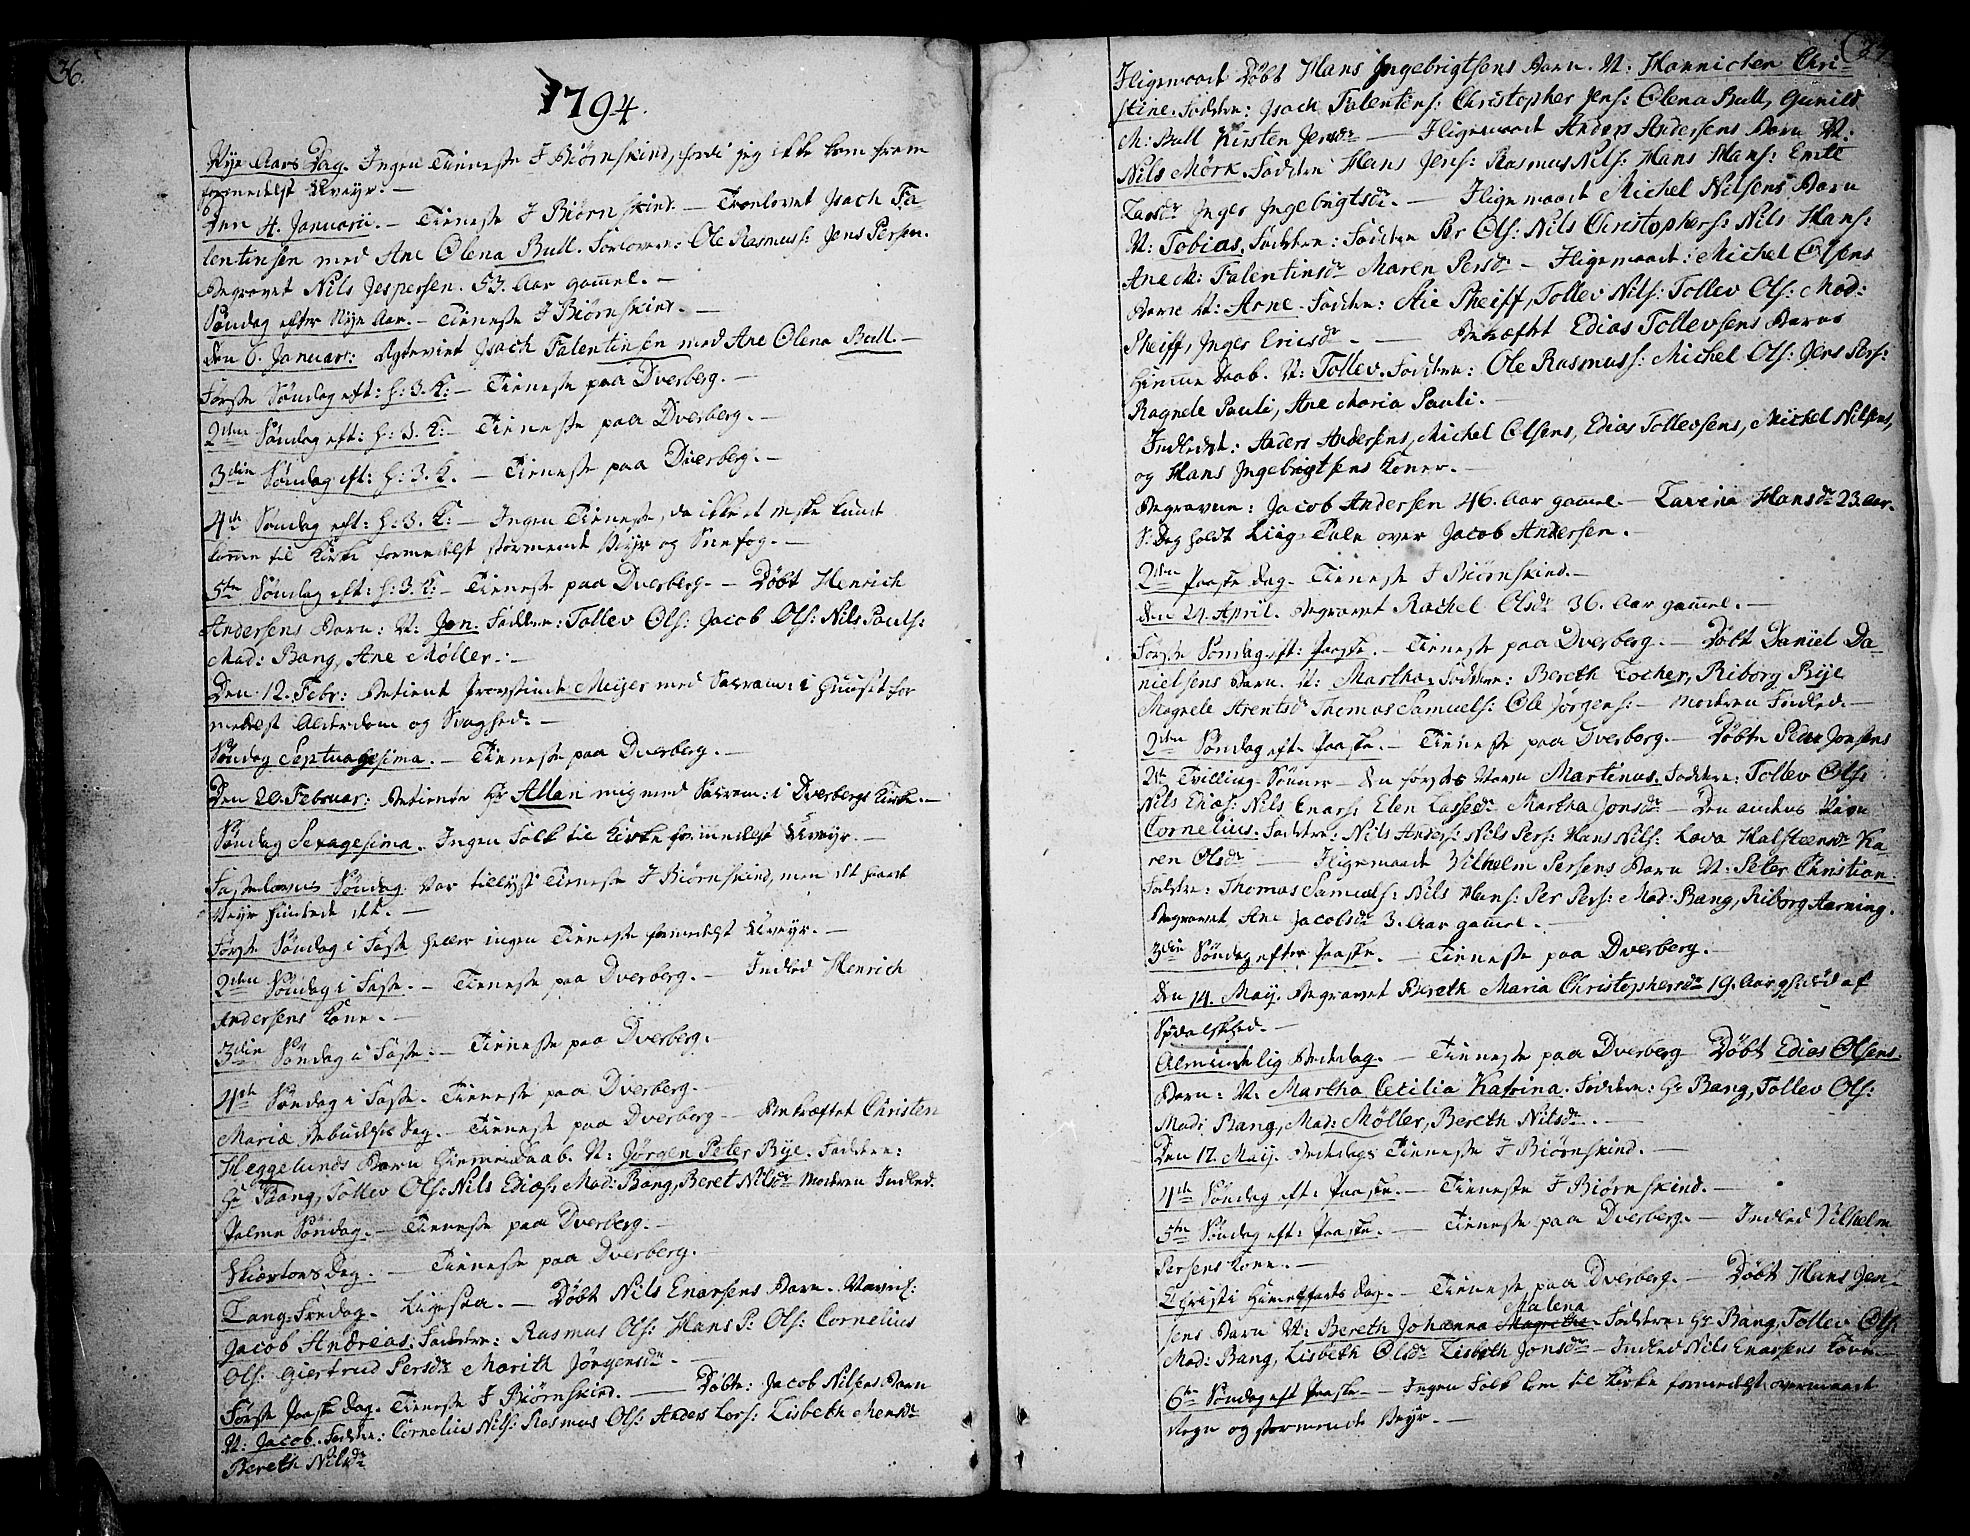 36.
1794.
Nye Aars Dag. Ingen Tieneste J Biørnskind, fordi jeg ikke kom frem
formedelst Uveyr. —
Den 4. Januarii. — Tieneste J Biørnskind. — Trolovet Isach Fa-
lentinsen med Ane Olena Bull. Forlovere: Ole Rasmuss: Jens Persen.
Begravet Nils Jespersen. 53. Aar gammel. —
Søndag efter Nye Aar. — Tieneste J Biørnskind. —
den 6. Januar: Ægteviet Isach Falentinsen med Ane Olena Bull —
Første Søndag eft: h: 3. K: — Tieneste paa Dverberg. —
2den Søndag eft: h: 3. K: — Tieneste paa Dverberg. —
3die Søndag eft: h: 3. K. — Tieneste paa Dverberg. —
4de Søndag eft: h: 3. K: — Ingen Tieneste, da ikke et Meske kunde
komme til Kirke formedelst stormende Veyr og Snefog. —
5te Søndag eft: h: 3. K: — Tieneste paa Dverberg. — Døbt Henrich
Andersens Barn: N: Jon. Faddere: Tollev Ols: Jacob Ols: Nils Pauls:
Mad: Bang, Ane Møller. —
Den 12. Febr: Betient Provstinde Meyer med Sacram: i Huuset for
medelst Alderdom og Svaghed. —
Søndag Septuagesima. — Tieneste paa Dverberg. —
Den 20. Februar: Betiente Hr Allan mig med Sacram: i Dverbergs Kirke. —
Søndag Sexagesima. Ingen Folk til Kirke formedelst Uveyr. —
Fastelavns Søndag. Var tillyst Tieneste J Biørnskind, men et haart
Veyr hindrede det. —
Første Søndag i Faste heller ingen Tieneste formedelst Uveyr. —
2den Søndag i Faste. — Tieneste paa Dverberg. — Indled Henrich
Andersens Kone. —
3die Søndag i Faste. — Tieneste paa Dverberg. —
4de Søndag i Faste. Tieneste paa Dverberg. —
Mariæ Bebudelses Dag. — Tieneste paa Dverberg — Bekræftet Christen
Heggelunds Barn Hiemedaab. N: Jørgen Peter Bye. Faddere:
Hr Bang, Tollev Ols: Nils Edias: Mad: Bang, Beret Nilsdr Moderen Indled.
Palme Søndag. — Tieneste paa Dverberg. —
Skiertorsdag. — Tieneste paa Dverberg. —
Lang-Fredag. Ligesaa. — Døbt Nils Enarsens Barn. Navnl:
Jacob Andreas. Faddere: Rasmus Ols: Hans P: Ols: Cornelius
Ols: Giertrud Persdr Marith Jørgensdr. —
Første Paaske Dag. Tieneste J Biørnskind. — Døbte: Jacob Nilsens Barn
N: Jacob. Faddere: Cornelius Nils: Rasmus Ols: Anders Lors: Lisbeth Mensdr
Bereth Nilsdr
Iligemaade Døbt Hans Ingebrigtsens Barn. N: Hannichen Chri-
stine. Faddere: Isach Falentins: Christopher Jens: Olena Bull, Gunild
M: Bull Kirsten Jensdr — Iligemaade Anders Andersens Barn N:
Nils Mørk. Faddere Hans Jens: Rasmus Nils: Hans Hans: Emte
Larsdr Inger Ingebrigtsdr. — Iligemaade Michel Nilsens Barn
N: Tobias. Faddere: Faddere Per Ols: Nils Christophers: Nils Hans:
Ane M: Falentinsdr Maren Persdr — Iligemaade: Michel Olsens
Barn N: Arne. Faddere: Aie Pheiff, Tollev Nils: Tollev Ols: Mad:
Pheiff, Inger Ericsdr — Bekræftet Edias Tollevsens Barns
Hieme Daab. N: Tollev. Faddere: Ole Rasmuss: Michel Ols: Jens Pers:
Ragnele Pauli, Ane Maria Pauli. —
Indledet: Anders Andersens, Michel Olsens, Edias Tollevsens, Michel Nilsens,
og Hans Ingebrigtsens Koner. —
Begravne: Jacob Andersen 46. Aar gamel — Lavina Hansdr 23. Aar.
S: Dag holdt Liig-Tale over Jacob Andersen.
2den Paaske Dag. Tieneste J Biørnskind. —
Den 24. April. Begravet Rachel Olsdr 36. Aar gamel. —
Første Søndag eft: Paaske. — Tieneste paa Dverberg. — Døbt Daniel Da-
nielsens Barn. N: Martha. Faddere: Bereth Locher, Riborg Bye
Magnele Arentsdr Thomas Samuels: Ole Jørgens: — Moderen Indled. —
2den Søndag eft. Paaske. — Tieneste paa Dverberg. — Døbte Peder Jonsens
2de Tvilling Sønner — den førstes Navn Martinus. Faddere: Tollev Ols:
Nils Edias: Nils Enars: Elen Lassedr Martha Jonsdr — Den andens Navn
Cornelius. Faddere: Nils Anders: Nils Pers: Hans Nils: Lava Halsteensdr Ka-
ren Olsdr — Iligemaade Vilhelm Persens Barn N: Peter Christian.
Faddere: Thomas Samuels: Nils Hans: Per Pers: Mad: Bang, Riborg Aarning.
Begravet Ane Jacobsdr 3. Aar gamel. —
3die Søndag efter Paaske. — Tieneste paa Dverberg.
Den 14. Maij. Begravet Bereth Maria Christophersdr 19. Aar g: død af
Spedalskhed. —
Almindelig Bededag. — Tieneste paa Dverberg Døbt Edias Olsens
Barn: N: Martha Cecilia Katrina. Faddere: Hr Bang, Tollev Ols:
Mad: Bang, Mad: Møller, Bereth Nilsdr. —
Den 17. Maij. Bededags Tieneste J Biørnskind. —
4de Søndag eft: Paaske. — Tieneste J Biørnskind. —
5te Søndag eft: Paaske. — Tieneste paa Dverberg. — Indled Vilhelm
Persens Kone. —
Christi Himelfarts Dag. — Tieneste paa Dverberg. — Døbt Hans Jen-
Malena
sens Barn N: Bereth Johanna Magrethe. Faddere: Hr Bang, Tollev Ols:
Mad: Bang, Lisbeth Olsdr Lisbeth Jonsdr — Indled Nils Enarsens Kone. —
6te Søndag eft Paaske — Ingen Folk kom til Kirke formedelst overmaade
Regn og stormende Veyr. —